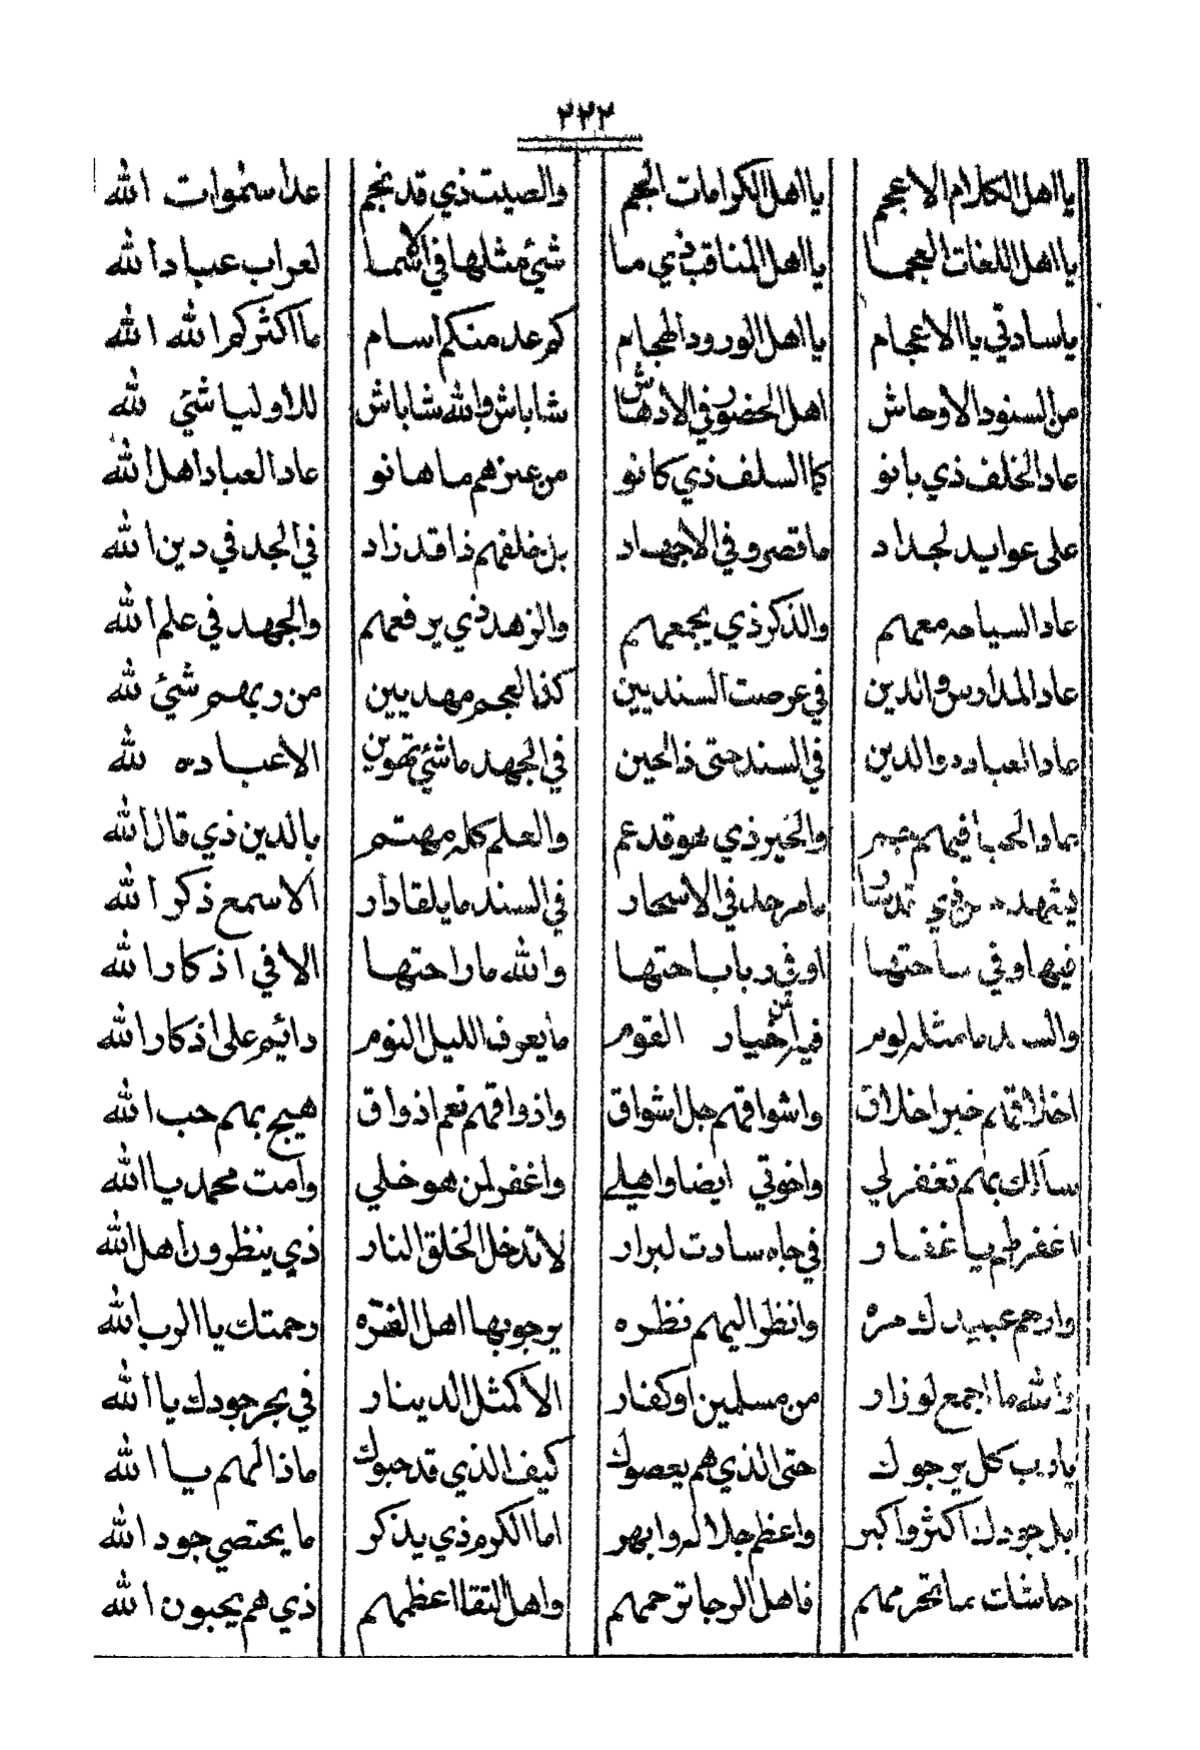 ٢٢٢
يا اهل الكلام الاعجم يا اهل الكرامات الجم والصيت ذي قد نجم عدا سموات الله
يا اهل اللغات العجما يا اهل المناقب ذي ما شيً مثلها في الاسما لعراب عباد الله
يا سادتي يا الاعجام يا اهل الورود كم عد منكم اسام ما اكثركم الله الله
من السنود الاوحاش اهل الحضور في الادهاش شاباش والله شاباش للاوليا شيً لله
عاد الخلف ذي بانو كما السلف ذي كانو من عزهم ما هانو عاد العباد اهل الله
على عوايد لجداد ما قصرو في الاجهاد بل خلفهم ذا قد زاد في الجد في دين الله
عاد السياحه معهم والذكر ذي يجمعهم والزهد ذي يرفعهم والجهد في علم الله
عاد المدارس والدين في عرصت السنديين كذا العجم مهديين من ربهم شيً لله
عاد العباده والدين في السند حتى ذالحين في الجهد ما شي تهوين الا عباده لله
فيهم والخير ذي هو قد عم والعلم كله مهتم بالدين ذي قال الله
يشهد ما مر حد في الاسحار في السند ما يلقا دار الا سمع ذكر الله
فيها وفي ساحتها او في باباحتها والله ما راحتها الا في اذكار الله
والسند ما مثله لوم فيه من اخيار القوم ما يعرف الليل النوم دائيم على اذكار الله
اخلاقهم خير اخلاق واشواقهم جل اشواق واذواقهم نعم اذواق هيج بهم حب الله
سألك بهم تغفر لي واخوتي ايضا واهيلي واغفر لمن هو خلي وامت محمد يا الله
اغفر لهم يا غفار في جاه سادت لبرار لا تدخل الخلق النار ذي ينظرون اهل الله
وارحم عبيدك مره وانظر اليهم نظره يرجو بها اهل الفتره رحمتك يا الرب الله
والله ما اجمع لوزار من مسلمين او كفار الا كمثل الدينار في بحر جودك يا الله
يا رب كل يرجوك حتى الذي هم يعصوك كيف الذي قد حبوك ماذا لهم يا الله
بل جودك اكثر واكبر واعظم جلاله وابهر اما الكرم ذي يذكر ما يحتصي جود الله
حاشات ما تحرمهم فاهل الرجا ترحمهم واهل التقا اعظمهم ذي هم يحبون الله